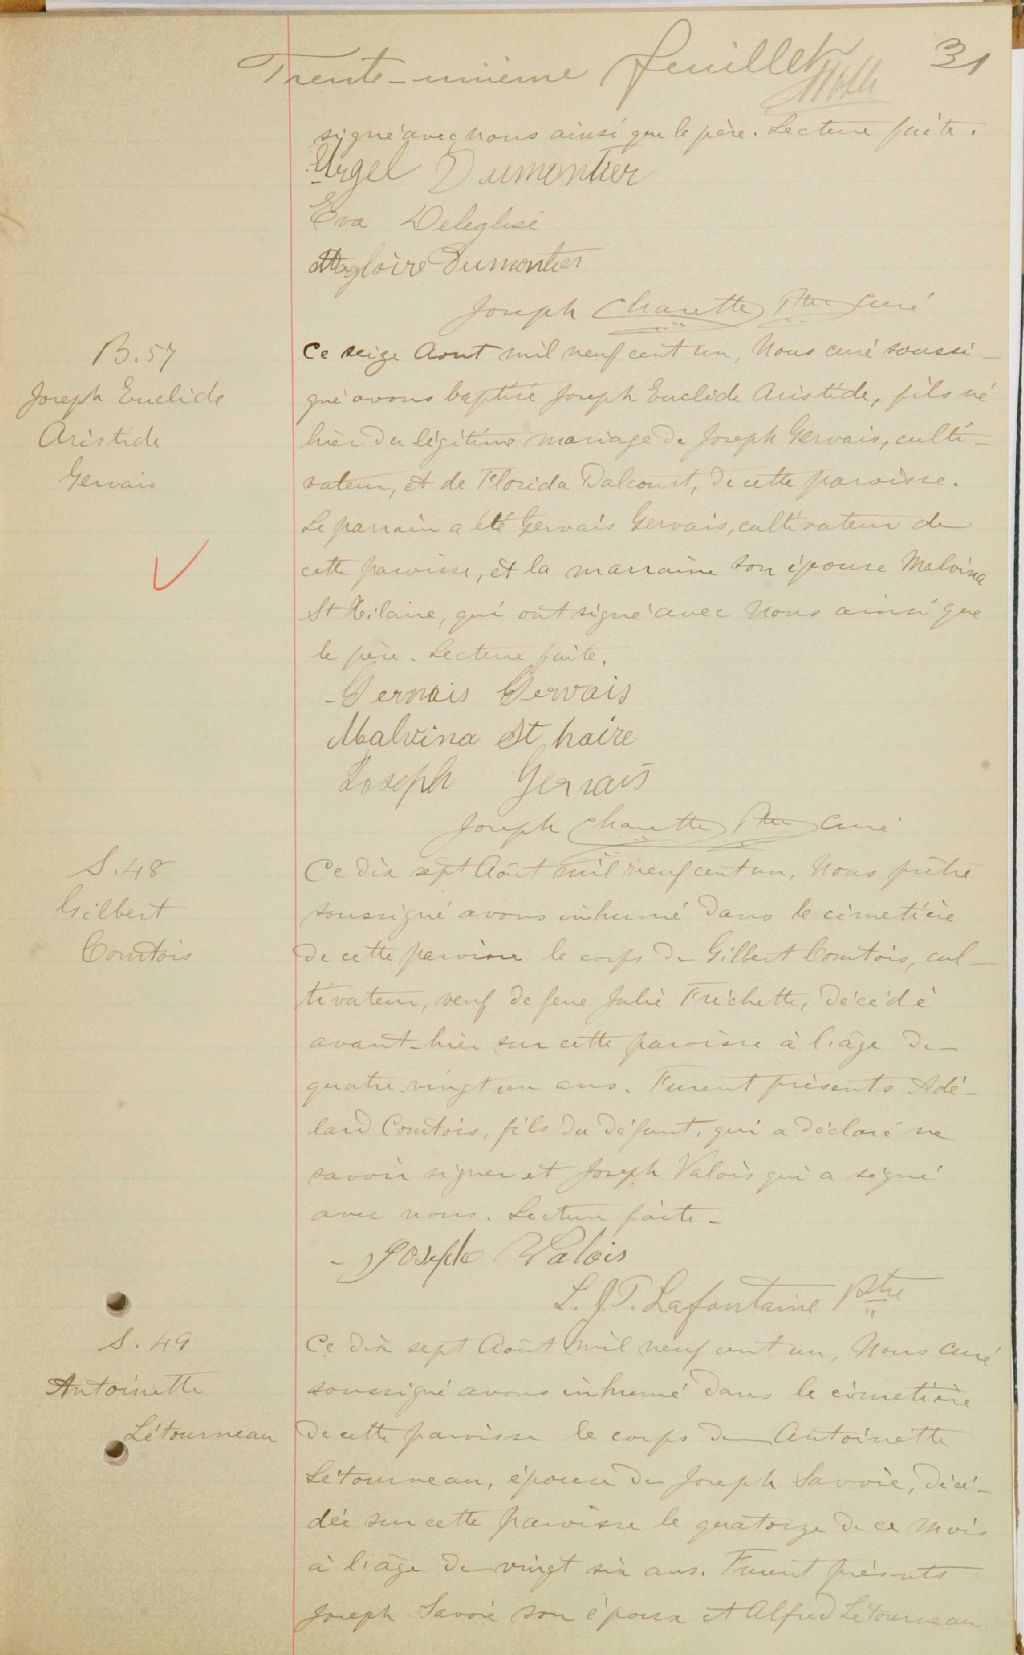 Trente-unième feuillet 31
signé avec nous ainsi que le père. Lecture faite.
Urgel Dumontier
Eva Deleglise
Magloire Dumontier
Joseph Charette Ptre Curé
B. 57
Joseph Euclide
Aristide
Gervais
Ce seize Aout mil neuf cent un, Nous curé soussi-
gné avons baptisé Joseph Euclide Aristide, fils né
hier du légitime mariage de Joseph Gervais, culti-
vateur, et de Florida Dalcourt, de cette paroisse.
Le parrain a été Gervais Gervais, cultivateur de
cette paroisse, et la marraine son épouse Malvina
St Hilaire, qui ont signé avec Nous ainsi que
le père. Lecture faite.
Gervais Gervais
Malvina St haire
Joseph Gervais
Joseph Charette Ptre Curé
S. 48
Gilbert
Comtois
Ce dix sept Août mil neuf cent un, Nous prêtre
soussigné avons inhumé dans le cimetière
de cette paroisse le corps de Gilbert Comtois, cul-
tivateur, veuf de feue Julie Fréchette, décédé
avant-hier sur cette paroisse à l'âge de
quatre-vingt un ans. Furent présents Adé-
lard Comtois, fils du défunt, qui a déclaré ne
savoir signer et Joseph Valois qui a signé
avec nous. Lecture faite-
Joseph Valois
L. J. T. Lafontaine Ptre
S. 49
Antoinette
Létourneau
Ce dix sept Août mil neuf cent un, Nous Curé
soussigné avons inhumé dans le cimetière
de cette paroisse le corps de Antoinette
Létourneau, épouse de Joseph Savoie, décé-
dée sur cette paroisse le quatorze de ce mois
à l'âge de vingt six ans. Furent présents
Joseph Savoie son époux et Alfred Létourneau